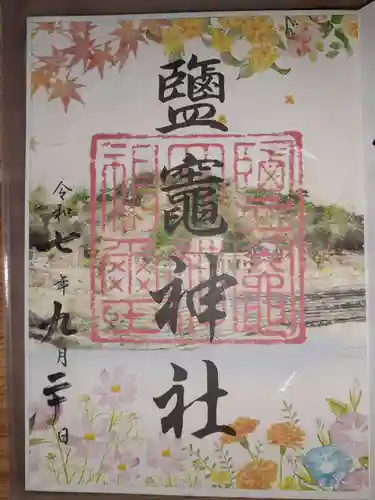 鹽竈神社
令和七年九月二十日